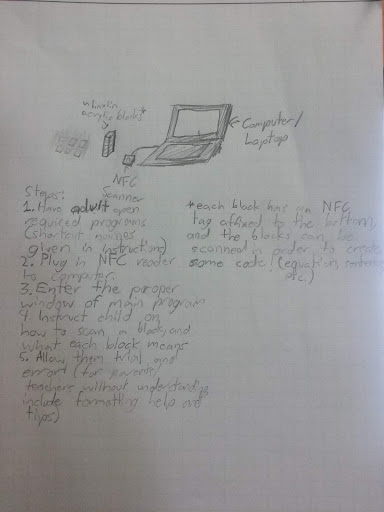 acrylic blocks*
Computer/
Laptop
NFC
Scanner
Steps:
1. Have adult open
required programs
(shortcut names
given in instruction)
2. Plug in NFC reader
to computer.
3. Enter the proper
window of main program
4. Instruct child on
how to scan a block, and
what each block means
5. Allow them trial and
error! (for parents/
teachers without understanding,
include formatting help and
tips)
*each block has an NFC
tag affixed to the bottom,
and the blocks can be
scanned in order to create
some code! (equation, sentence
etc.)